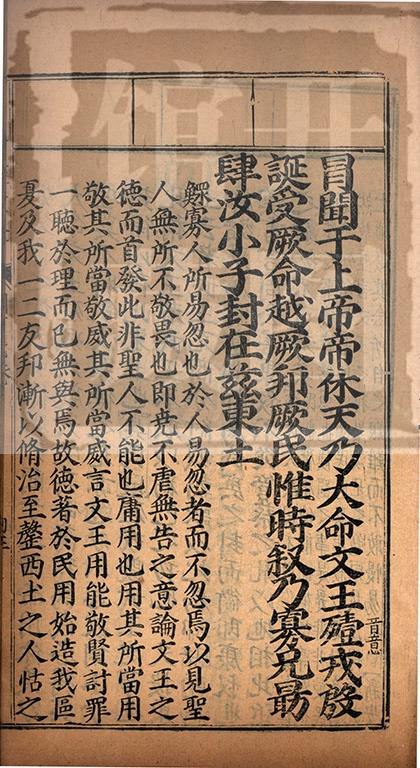 冒聞于上帝帝休天乃大命文王殪戎殷
誕受厥命越厥邦厥民惟時叙乃寡兄勖
肆汝小子封在兹東土
鰥寡人所易忽也於人易忽者而不忽焉以見聖
人無所不敬畏也即堯不虐無告之意論文王之
德而首發此非聖人不能也庸用也用其所當用
敬其所當敬威其所當威言文王用能敬賢討罪
一聽於理而已無與焉故德著於民用始造我區
夏及我一二友邦漸以脩治至罄西土之人怙之